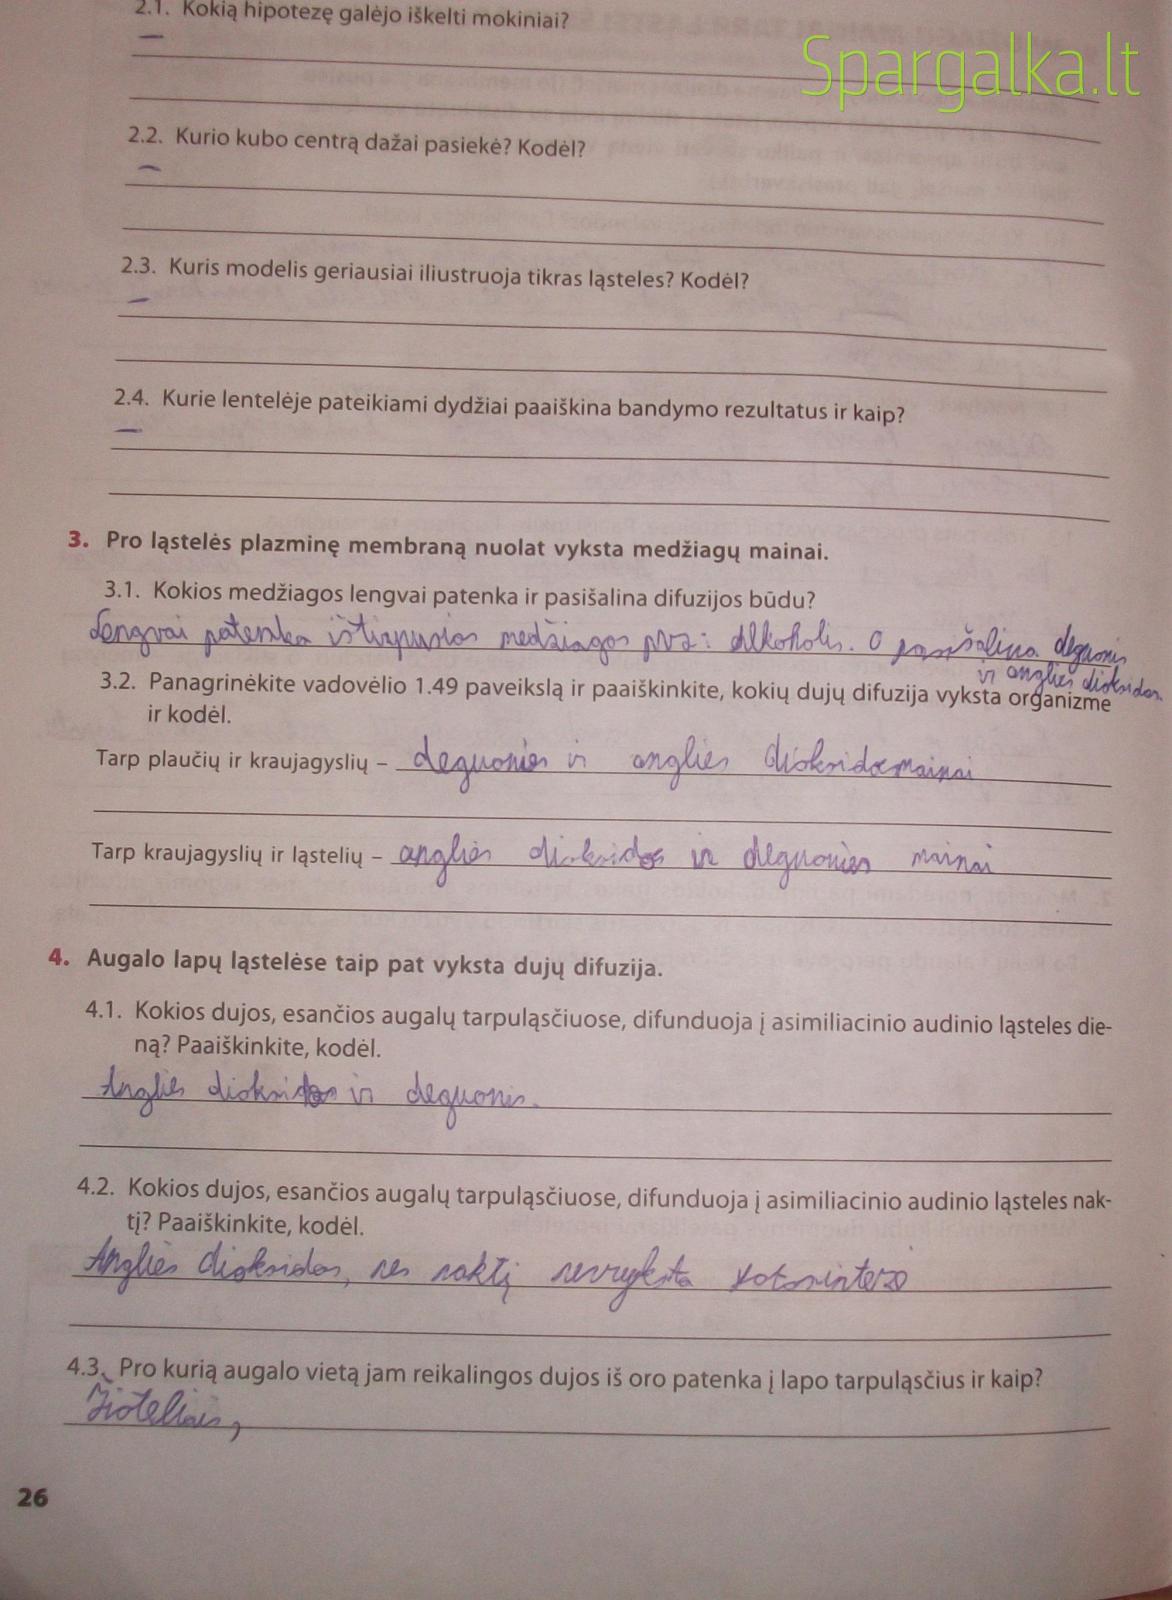 2.1. Kokią hipotezę galėjo iškelti mokiniai?
–
Spargalka.lt
2.2. Kurio kubo centrą dažai pasiekė? Kodėl?
–
2.3. Kuris modelis geriausiai iliustruoja tikras ląsteles? Kodėl?
–
2.4. Kurie lentelėje pateikiami dydžiai paaiškina bandymo rezultatus ir kaip?
–
3. Pro ląstelės plazminę membraną nuolat vyksta medžiagų mainai.
3.1. Kokios medžiagos lengvai patenka ir pasišalina difuzijos būdu?
Lengvai patenka ištirpusios medžiagos pvz: alkoholis. O pasišalina deguonis
ir anglies dioksidas.
3.2. Panagrinėkite vadovėlio 1.49 paveikslą ir paaiškinkite, kokių dujų difuzija vyksta organizme
ir kodėl.
Tarp plaučių ir kraujagyslių – deguonies ir anglies dioksido mainai
Tarp kraujagyslių ir ląstelių – anglies dioksido ir deguonies mainai
4. Augalo lapų ląstelėse taip pat vyksta dujų difuzija.
4.1. Kokios dujos, esančios augalų tarpuląsčiuose, difunduoja į asimiliacinio audinio ląsteles die-
ną? Paaiškinkite, kodėl.
Anglies dioksidas ir deguonis.
4.2. Kokios dujos, esančios augalų tarpuląsčiuose, difunduoja į asimiliacinio audinio ląsteles nak-
tį? Paaiškinkite, kodėl.
Anglies dioksidas, nes naktį nevyksta fotosintezė
4.3. Pro kurią augalo vietą jam reikalingos dujos iš oro patenka į lapo tarpuląsčius ir kaip?
Žioteliais,
26